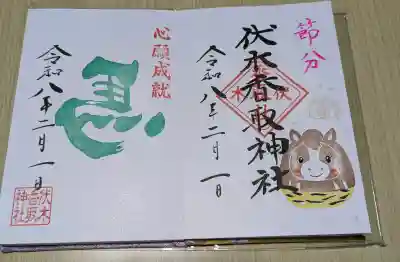 節分
伏木香取神社
令和八年二月一日
心願成就
馬
令和八年二月一日
伏木
香取
神社